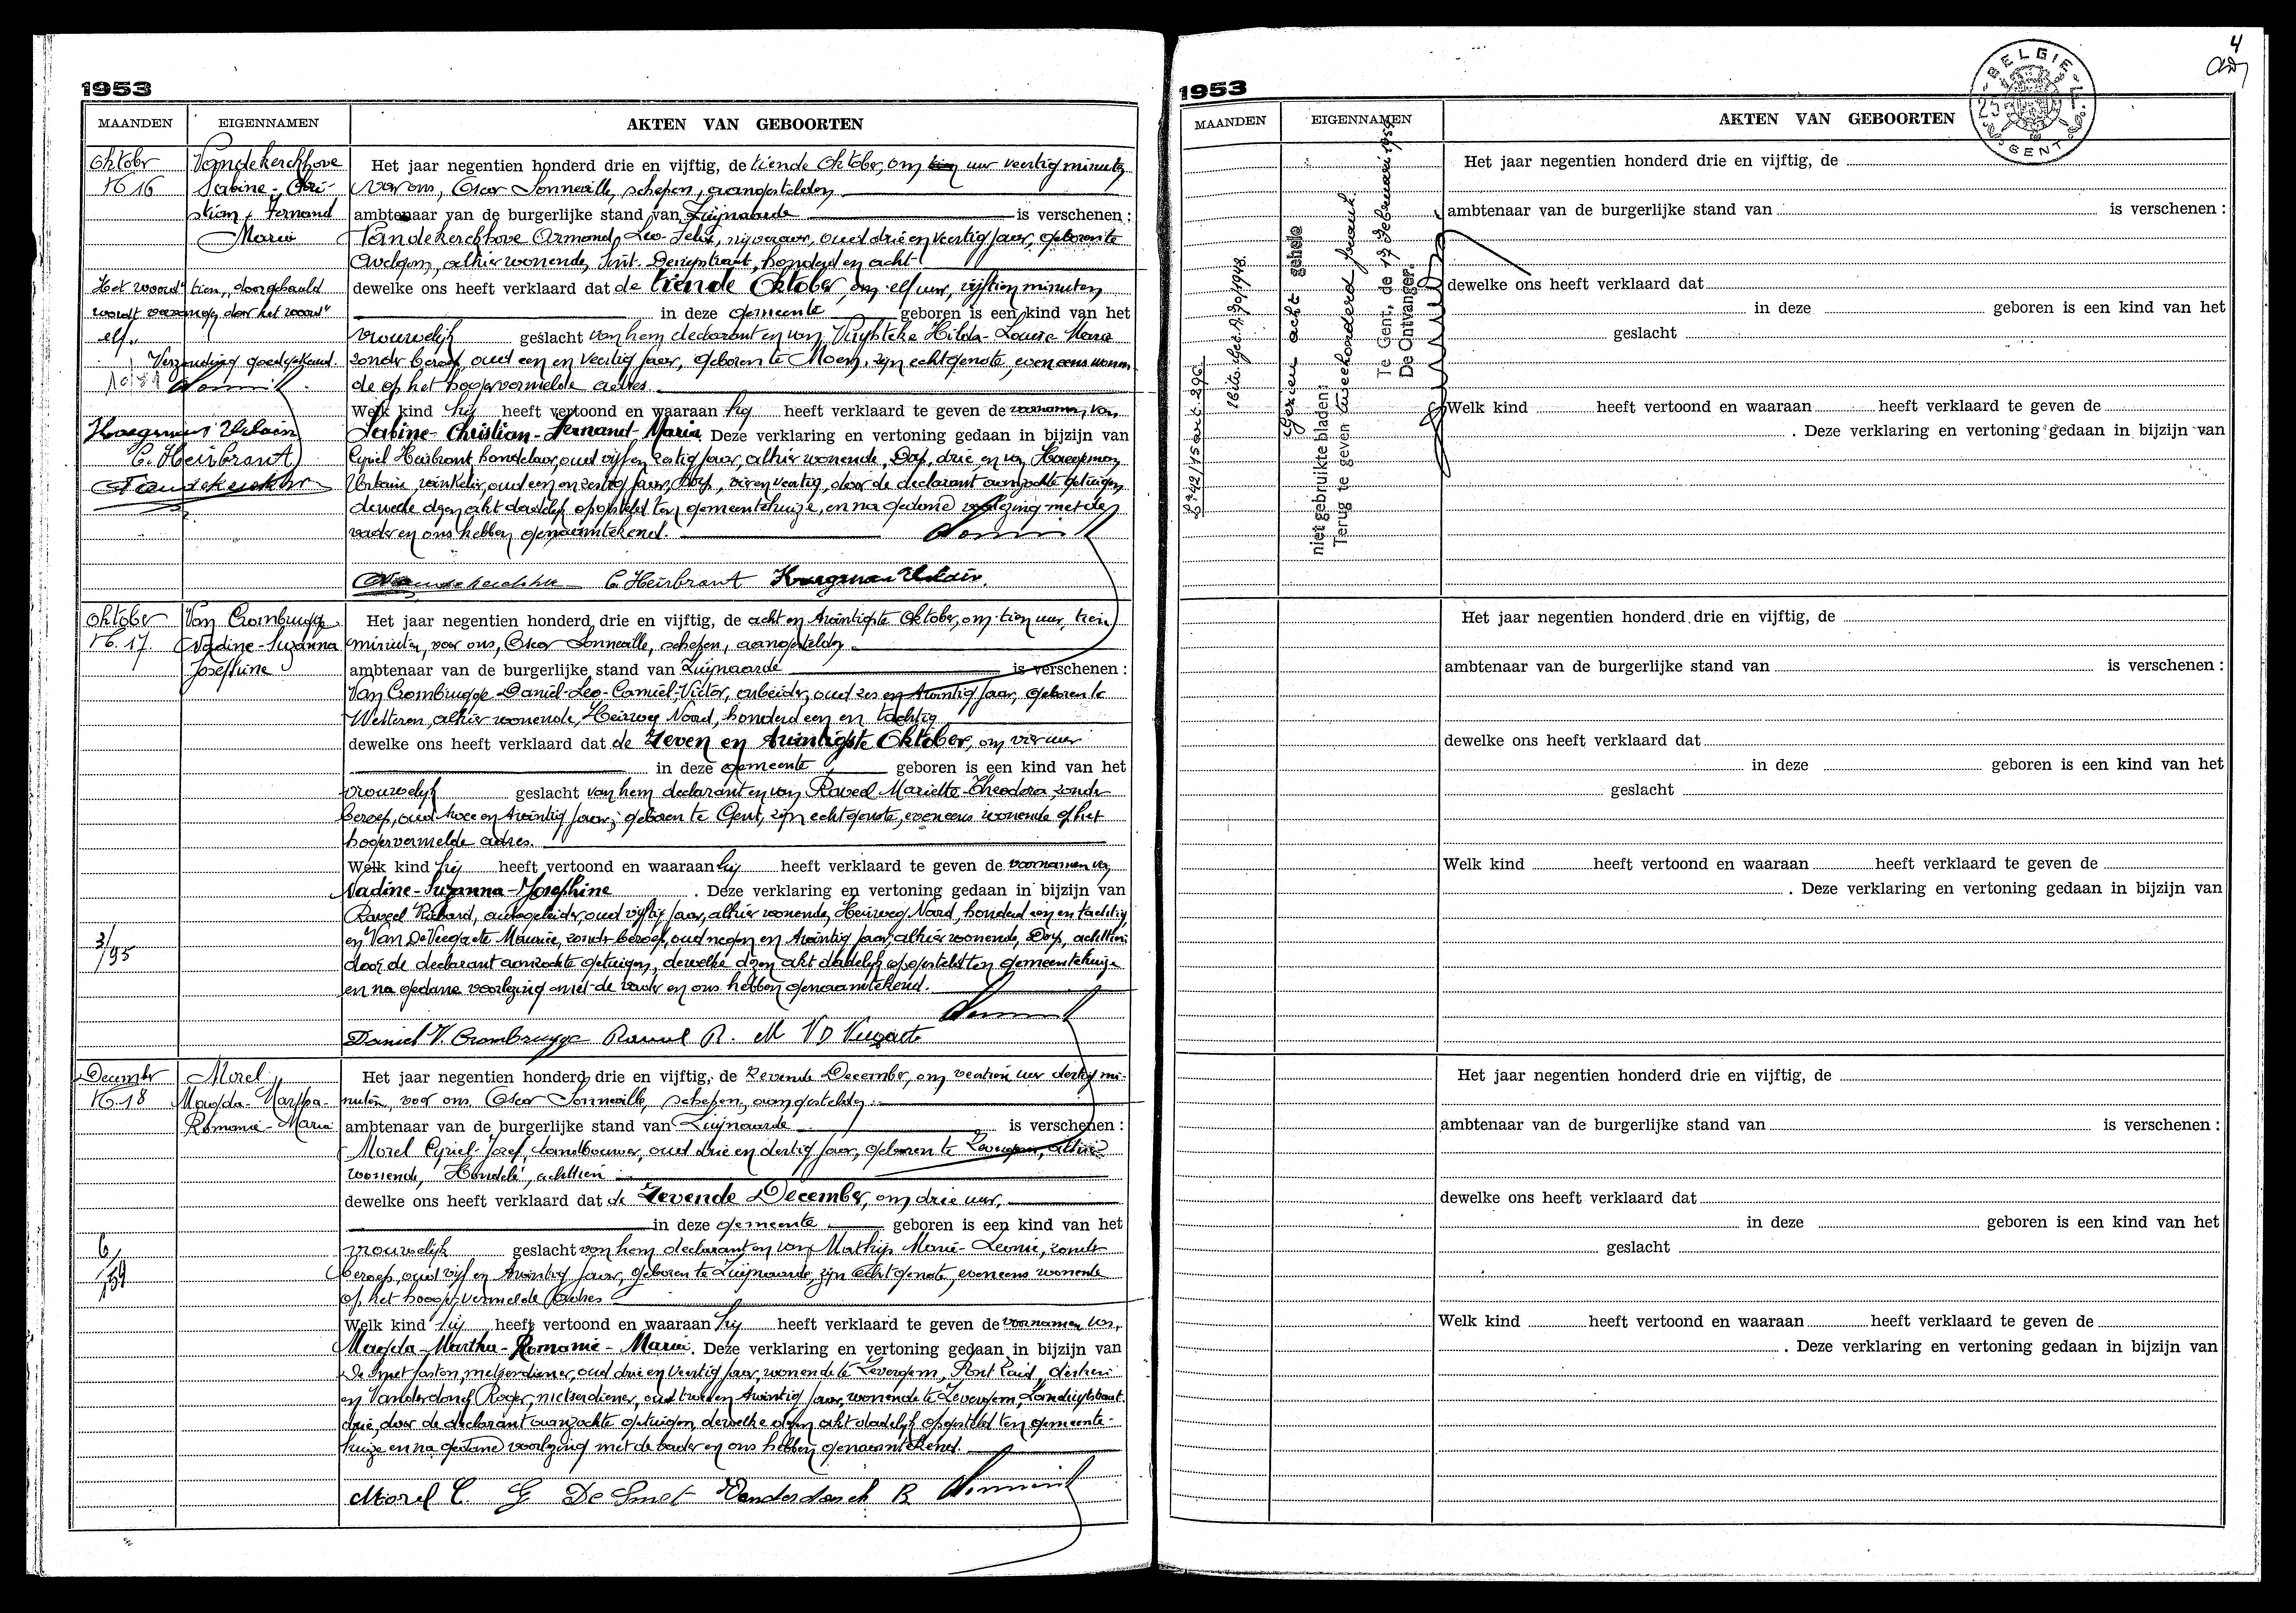 1953
MAANDEN EIGENNAMEN AKTEN VAN GEBOORTEN
Oktober
N° 16
Vandekerckhove
Sabine - Chri-
stian - Fernand
Maria
Het woord "tien" doorgehaald
wordt vervangen door het woord "
elf"
Verzending goedgekeurd.
Haegeman Urbain
C. Heirbrant
Het jaar negentien honderd drie en vijftig, de tiende Oktober, om tien uur veertig minuten
voor ons, Oscar Sonneville, schepen, aangestelden
ambtenaar van de burgerlijke stand van Zwijnaarde is verschenen :
Vandekerckhove Armand, Leo-Felix, nijveraar, oud drie en veertig jaar, geboren te
Avelgem, alhier wonende, honderd en acht
dewelke ons heeft verklaard dat de tiende Oktober, om elf uur, vijftien minuten
in deze gemeente geboren is een kind van het
vrouwelijk geslacht van hem declarant en van Hilda-Louise-Maria
zonder beroep, oud een en veertig jaar, geboren te Moen, zijn echtgenote, eveneens wonen-
de op het hogervermelde adres.
Welk kind hij heeft vertoond en waaraan hij heeft verklaard te geven de voornamen van
Sabine-Christian-Fernand-Maria Deze verklaring en vertoning gedaan in bijzijn van
Cyriel Heirbrant, handelaar, oud vijf en zestig jaar, alhier wonende, Dorp, drie en van Haegeman
Urbain, winkelier, oud een en zestig jaar, Dorp, vier en veertig, door de declarant aanzochte getuigen,
dewelke dezen akt dadelijk opgesteld ten gemeentehuize, en na gedane voorlezing met de
vader en ons hebben genaamtekend.
C. Heirbrant Haegeman Urbain.
Oktober
N° 17.
Van Crombrugge
Nadine-Suzanna
Josephine
3/95
Het jaar negentien honderd drie en vijftig, de acht en twintigste Oktober, om tien uur, tien
minuten, voor ons, Oscar Sonneville, schepen, aangestelden
ambtenaar van de burgerlijke stand van Zwijnaarde is verschenen :
Van Crombrugge Daniel-Leo-Camiel-Victor, arbeider, oud zes en twintig jaar, geboren te
Wetteren, alhier wonende, Heirweg Noord, honderd een en tachtig
dewelke ons heeft verklaard dat de zeven en twintigste Oktober, om vier uur
in deze gemeente geboren is een kind van het
vrouwelijk geslacht van hem declarant en van Raveel Mariette-Theodora, zonder
beroep, oud twee en twintig jaar, geboren te Gent, zijn echtgenote, eveneens wonende op het
hogervermelde adres.
Welk kind hij heeft vertoond en waaraan hij heeft verklaard te geven de voornamen van
Nadine-Suzanna-Josephine . Deze verklaring en vertoning gedaan in bijzijn van
Raveel Richard, oud vijftig jaar, alhier wonende, Heirweg Noord, honderd een en tachtig
en Van De Veegaete Maurice, zonder beroep, oud negen en twintig jaar, alhier wonende, Dorp, achttien
door de declarant aanzochte getuigen, dewelke dezen akt dadelijk opgesteld ten gemeentehuize
en na gedane voorlezing met de vader en ons hebben genaamtekend.
Daniel V. Crombrugge Raveel R. M V D Veegaete
December
N° 18
Morel
Magda-Martha-
Romanie-Maria
6/59
Het jaar negentien honderd drie en vijftig, de zevende December, om veertien uur dertig mi-
nuten, voor ons, Oscar Sonneville, schepen, aangestelden
ambtenaar van de burgerlijke stand van Zwijnaarde is verschenen :
Morel Cyriel-Jozef, landbouwer, oud drie en dertig jaar, geboren te Zevergem, alhier
wonende, Hondelé, achttien
dewelke ons heeft verklaard dat de zevende December, om drie uur,
in deze gemeente geboren is een kind van het
vrouwelijk geslacht van hem declarant en van Mathijs Marie-Leonie, zonder
beroep, oud vijf en twintig jaar, geboren te Zwijnaarde, zijn echtgenote, eveneens wonende
op het hooger vermelde adres
Welk kind hij heeft vertoond en waaraan hij heeft verklaard te geven de voornamen van
Magda-Martha-Romanie-Maria. Deze verklaring en vertoning gedaan in bijzijn van
De Smet Gaston, metserdiener, oud drie en veertig jaar, wonende te Zevergem, Pont Zuid, dertien
en Vanderdonck Roger, metserdiener, oud twee en twintig jaar, wonende te Zevergem,
drie, door de declarant aanzochte getuigen, dewelke dezen akt dadelijk opgesteld ten gemeente-
huize en na gedane voorlezing met de vader en ons hebben genaamtekend.
Morel C. G De Smet Vanderdonck R
1953
4
BELGIE
GENT
MAANDEN EIGENNAMEN AKTEN VAN GEBOORTEN
Gezien acht gehele
niet gebruikte bladen:
Terug te geven tweehonderd frank.
Te Gent, de 17 Februari 1954.
De Ontvanger.
Het jaar negentien honderd drie en vijftig, de
ambtenaar van de burgerlijke stand van is verschenen :
dewelke ons heeft verklaard dat
in deze geboren is een kind van het
geslacht
Welk kind heeft vertoond en waaraan heeft verklaard te geven de
. Deze verklaring en vertoning gedaan in bijzijn van
Het jaar negentien honderd drie en vijftig, de
ambtenaar van de burgerlijke stand van is verschenen :
dewelke ons heeft verklaard dat
in deze geboren is een kind van het
geslacht
Welk kind heeft vertoond en waaraan heeft verklaard te geven de
. Deze verklaring en vertoning gedaan in bijzijn van
Het jaar negentien honderd drie en vijftig, de
ambtenaar van de burgerlijke stand van is verschenen :
dewelke ons heeft verklaard dat
in deze geboren is een kind van het
geslacht
Welk kind heeft vertoond en waaraan heeft verklaard te geven de
. Deze verklaring en vertoning gedaan in bijzijn van